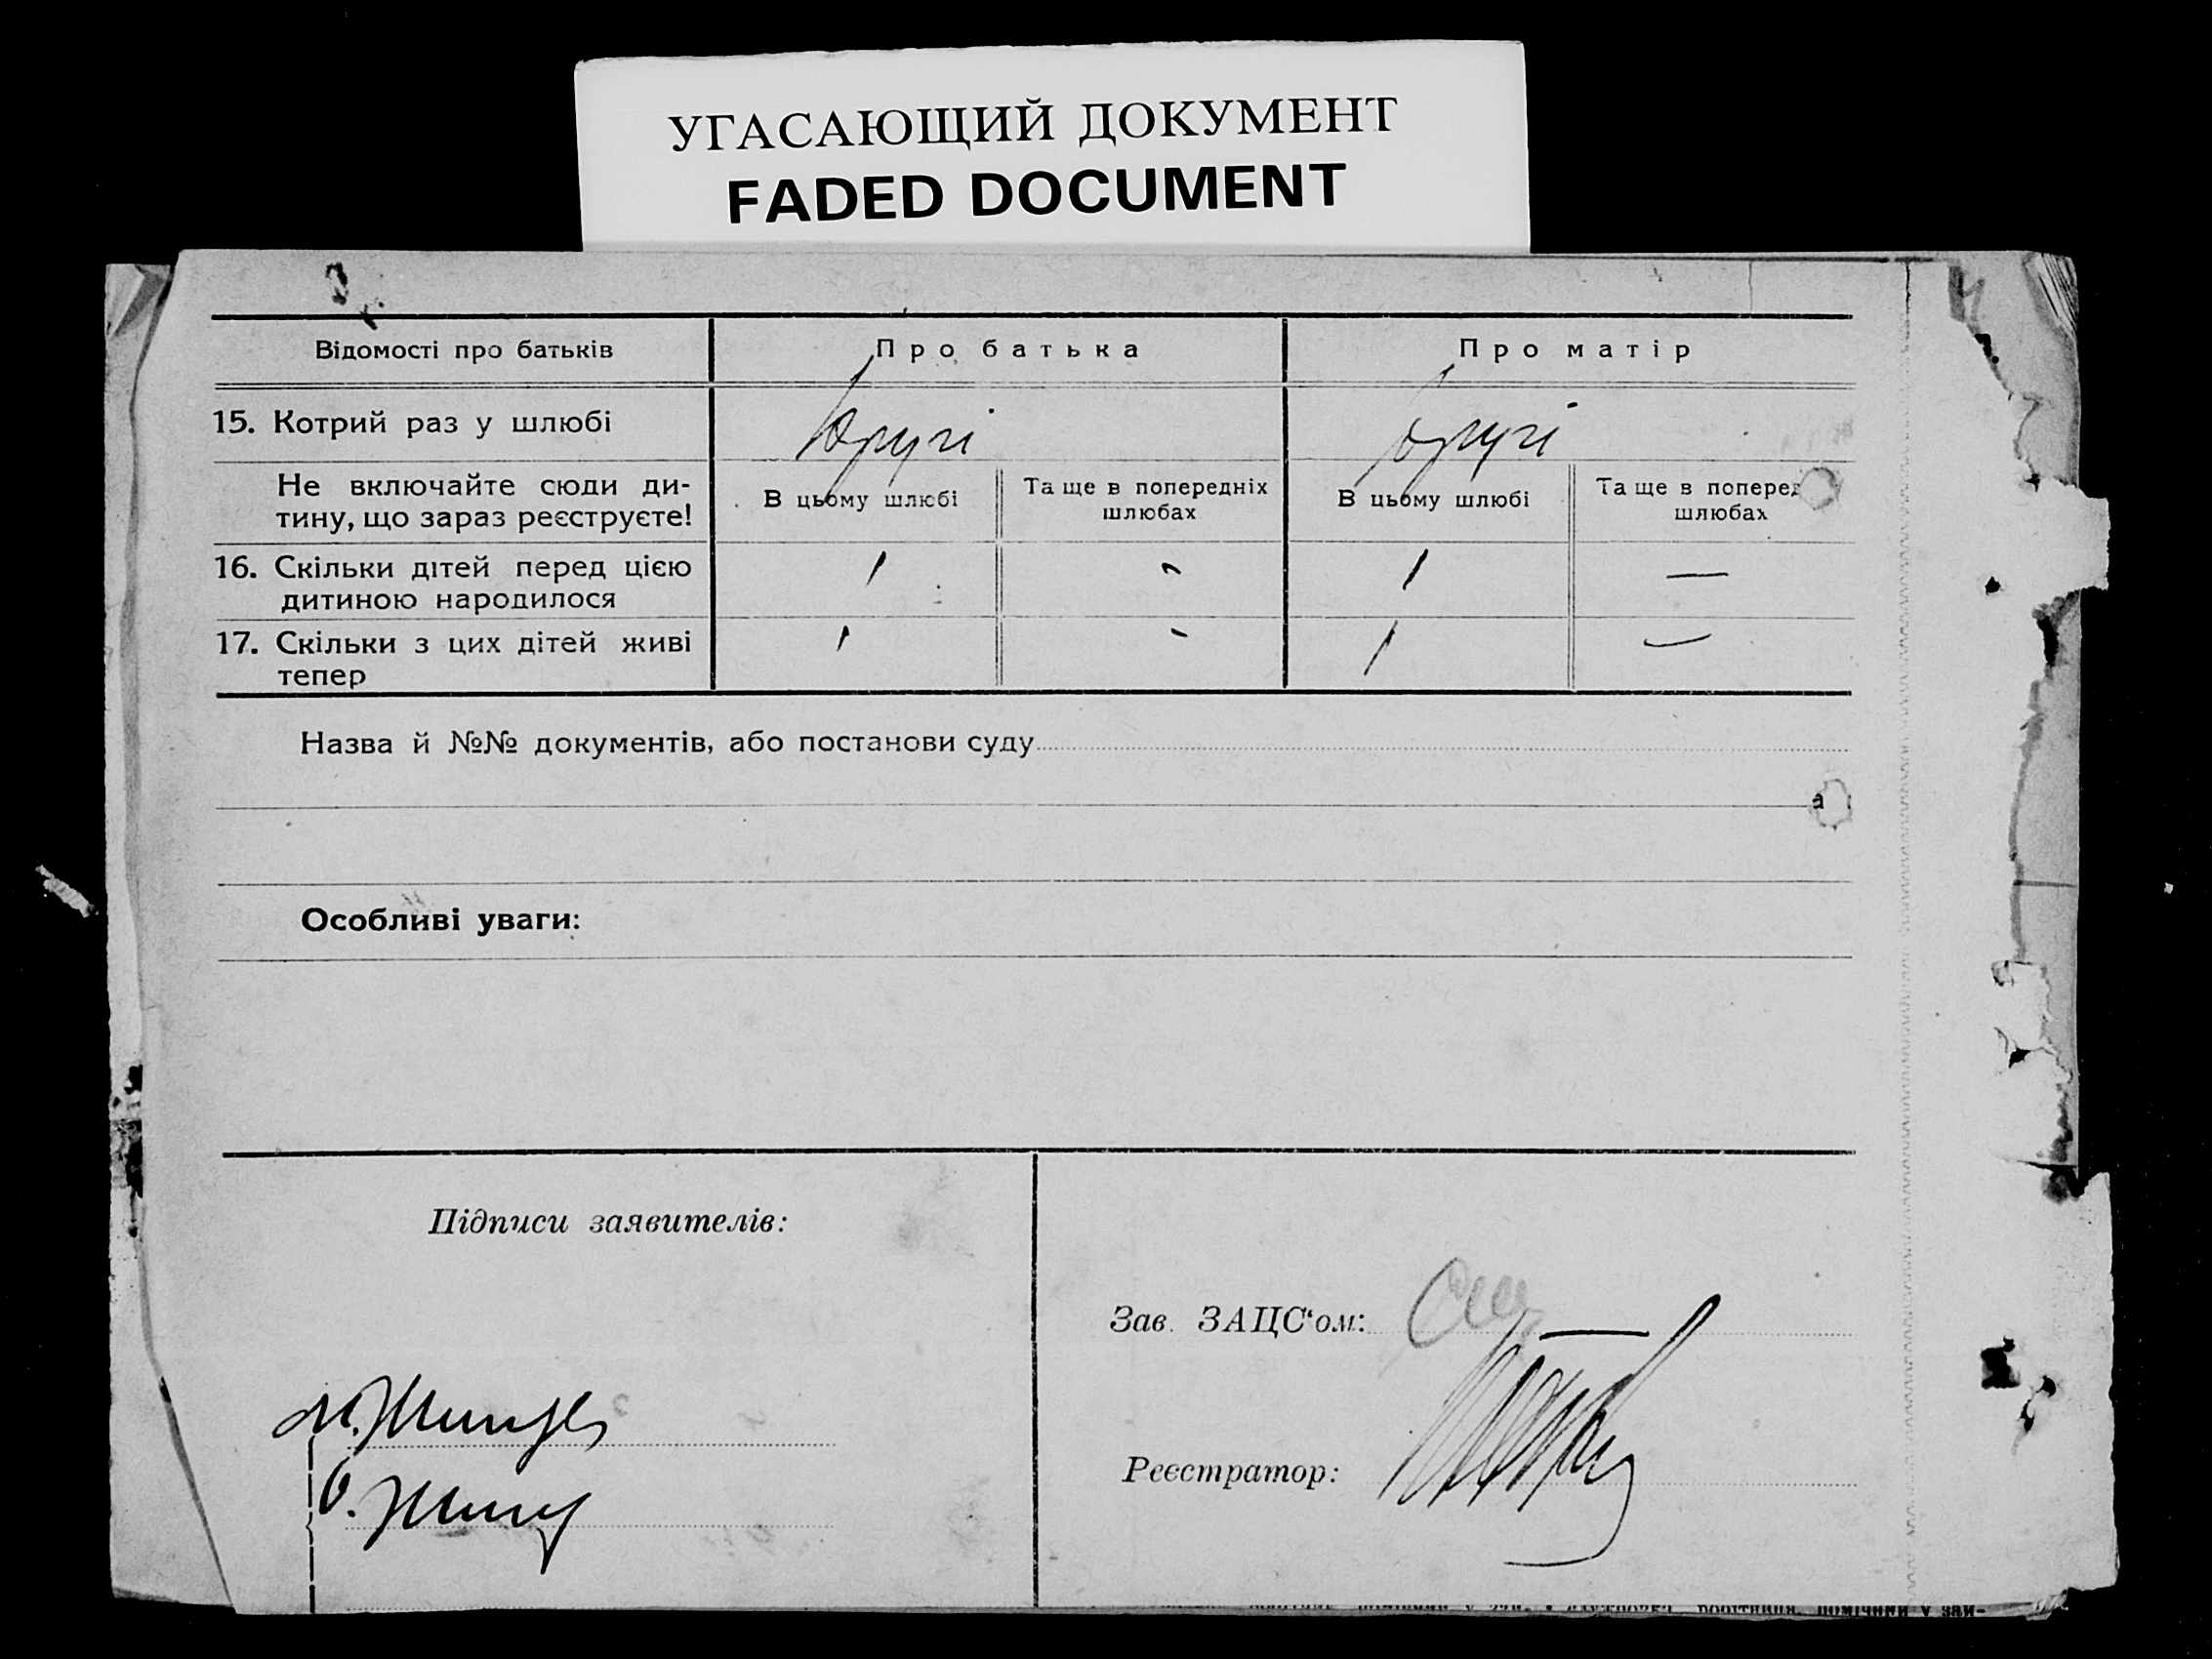 УГАСАЮЩИЙ ДОКУМЕНТ
FADED DOCUMENT
Відомості про батьків
Про батька
Про матір
15. Котрий раз у шлюбі
другі
другі
Не включайте сюди ди-
тину, що зараз реєструєте!
В цьому шлюбі
Та ще в попередніх
шлюбах
В цьому шлюбі
Та ще в поперед
шлюбах
16. Скільки дітей перед цією
дитиною народилося
1
-
1
—
17. Скільки з цих дітей живі
тепер
1
-
1
—
Назва й №№ документів, або постанови суду
Особливі уваги:
Підписи заявителів:
Зав. ЗАЦС‘ом:
Реєстратор: